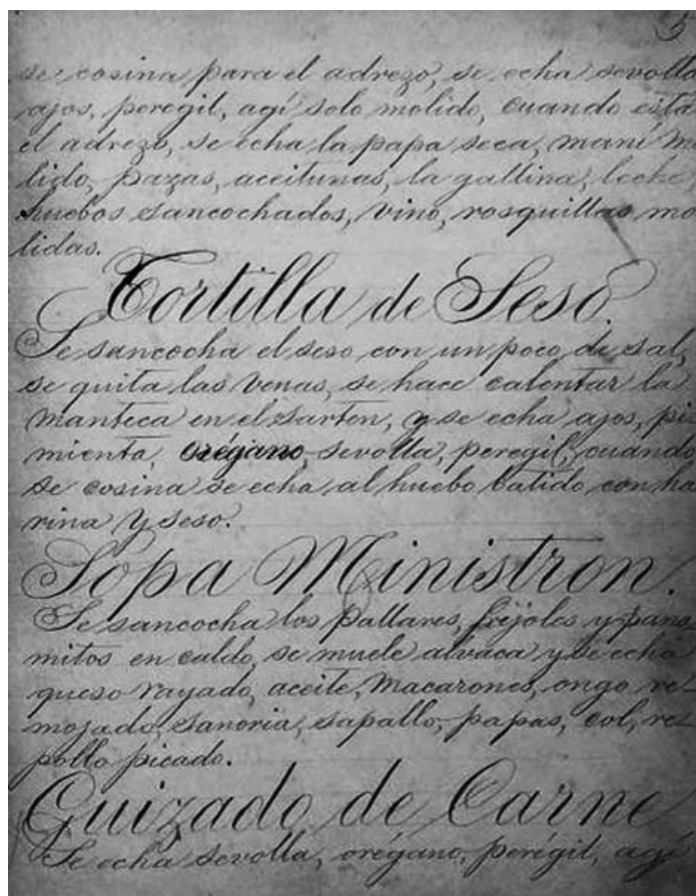 5
se cosina para el adrezo, se echa sevolla
ajos, peregil, agí solo molido, cuando esta
el adrezo, se echa la papa seca, maní mo
lido, pazas, aceitunas, la gallina, leche,
huebos sancochados, vino, rosquillas mo
lidas.
Tortilla de Seso.
Se sancocha el seso con un poco di sal,
se quita las venas, se hace calentar la
manteca en el sarten, y se echa ajos, pi
mienta, orégano, sevolla, peregil, cuando
se cosina se echa al huebo batido con ha
rina y seso.
Sopa Ministron.
Se sancocha los pallares, frijoles y pana
mitos en caldo, se muele alvaca y se echa
queso rayado, aceite, macarones, ongo re
mojado, sanoria, sapallo, papas, col, re
pollo picado.
Guizado de Carne
Se echa sevolla, orégano, perégil, agí